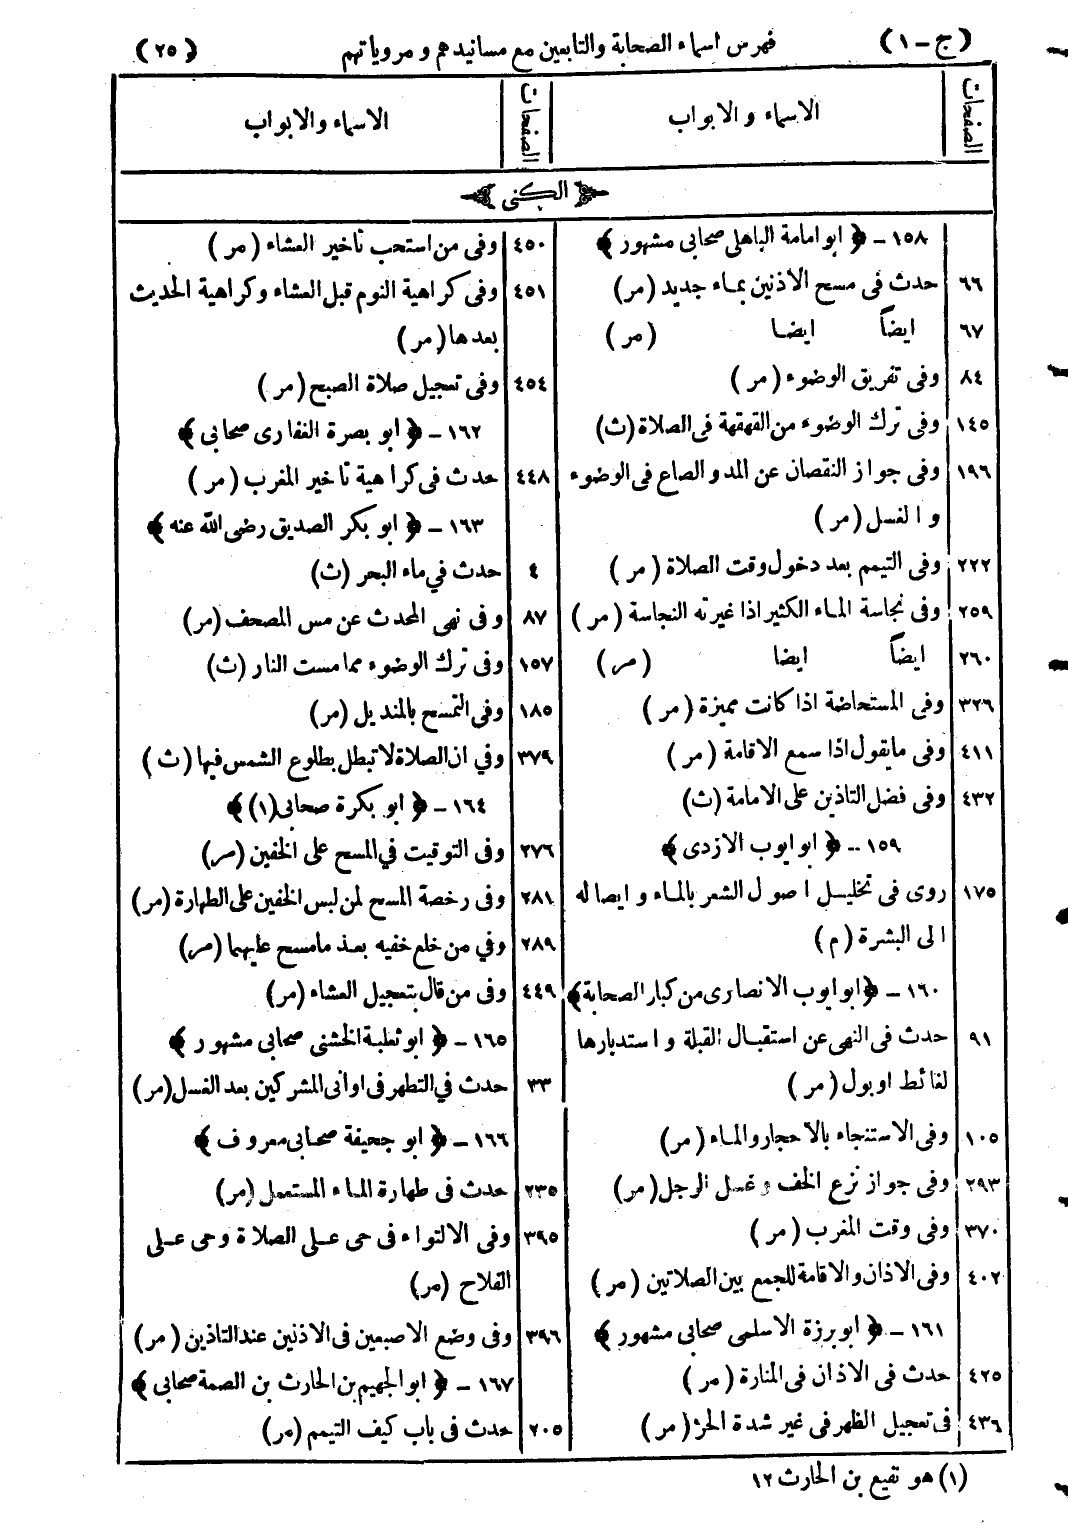 (ج-١) فهرس اسماء الصحابة والتابعين مع مسانيدهم و مروياتهم (٢٥)
الصفحات الاسماء والابواب
الصفحات الاسماء والابواب
الكنى
١٥٨ - ﴿ ابو امامة الباهلى صحابى مشهور ﴾
٦٦ حدث فى مسح الاذنين بماء جديد (مر)
٦٧ ايضاً ايضا (مر)
٨٤ وفى تفريق الوضوء (مر)
١٤٥ وفى ترك الوضوء من القهقهة فى الصلاة (ث)
١٩٦ وفى جواز النقصان عن المد والصاع فى الوضوء
والغسل (مر)
٢٢٢ وفى التيمم بعد دخول وقت الصلاة (مر)
٢٥٩ وفى نجاسة الماء الكثير اذا غيرته النجاسة (مر)
٢٦٠ ايضاً ايضا (مر)
٣٢٦ وفى المستحاضة اذا كانت مميزة (مر)
٤١١ وفى مايقول اذا سمع الاقامة (مر)
٤٣٢ وفى فضل التاذين على الامامة (ث)
١٥٩ - ﴿ ابو ايوب الازدى ﴾
١٧٥ روى فى تخليل اصول الشعر بالماء وايصاله
الى البشرة (م)
١٦٠ - ﴿ ابو ايوب الانصارى من كبار الصحابة ﴾
٩١ حدث فى النهى عن استقبال القبلة واستدبارها
لغائط اوبول (مر)
١٠٥ وفى الاستنجاء بالاحجار والماء (مر)
٢٩٣ وفى جواز نزع الخف وغسل الرجل (مر)
٣٧٠ وفى وقت المغرب (مر)
٤٠٢ وفى الاذان والاقامة للجمع بين الصلاتين (مر)
١٦١ - ﴿ ابو برزة الاسلمى صحابى مشهور ﴾
٤٢٥ حدث فى الاذان فى المنارة (مر)
٤٣٦ فى تعجيل الظهر فى غير شدة الحر (مر)
٤٥٠ وفى من استحب تاخير العشاء (مر)
٤٥١ وفى كراهية النوم قبل العشاء وكراهية الحديث
بعدها (مر)
٤٥٤ وفى تعجيل صلاة الصبح (مر)
١٦٢ - ﴿ ابو بصرة الغفارى صحابى ﴾
٤٤٨ حدث فى كراهية تاخير المغرب (مر)
١٦٣ - ﴿ ابو بكر الصديق رضى الله عنه ﴾
٤ حدث في ماء البحر (ث)
٨٧ وفى نهى المحدث عن مس المصحف (مر)
١٥٧ وفى ترك الوضوء مما مست النار (ث)
١٨٥ وفى التمسح بالمنديل (مر)
٣٧٩ وفي ان الصلاة لا تبطل بطلوع الشمس فيها (ث)
١٦٤ - ﴿ ابو بكرة صحابى (١) ﴾
٢٧٦ وفى التوقيت في المسح على الخفين (مر)
٢٨١ وفى رخصة المسح لمن لبس الخفين على الطهارة (مر)
٢٨٩ وفي من خلع خفيه بعد مامسح عليهما (مر)
٤٤٩ وفى من قال بتعجيل العشاء (مر)
١٦٥ - ﴿ ابو ثعلبة الخشنى صحابى مشهور ﴾
٣٣ حدث في التطهر فى اوانى المشركين بعد الغسل (مر)
١٦٦ - ﴿ ابو جحيفة صحابى معروف ﴾
٢٣٥ حدث فى طهارة الماء المستعمل (مر)
٣٩٥ وفى الالتواء فى حى على الصلاة وحى على
الفلاح (مر)
٣٩٦ وفى وضع الاصبعين فى الاذنين عند التاذين (مر)
١٦٧ - ﴿ ابو الجهيم بن الحارث بن الصمة صحابى ﴾
٢٠٥ حدث فى باب كيف التيمم (مر)
(١) هو نفيع بن الحارث ١٢